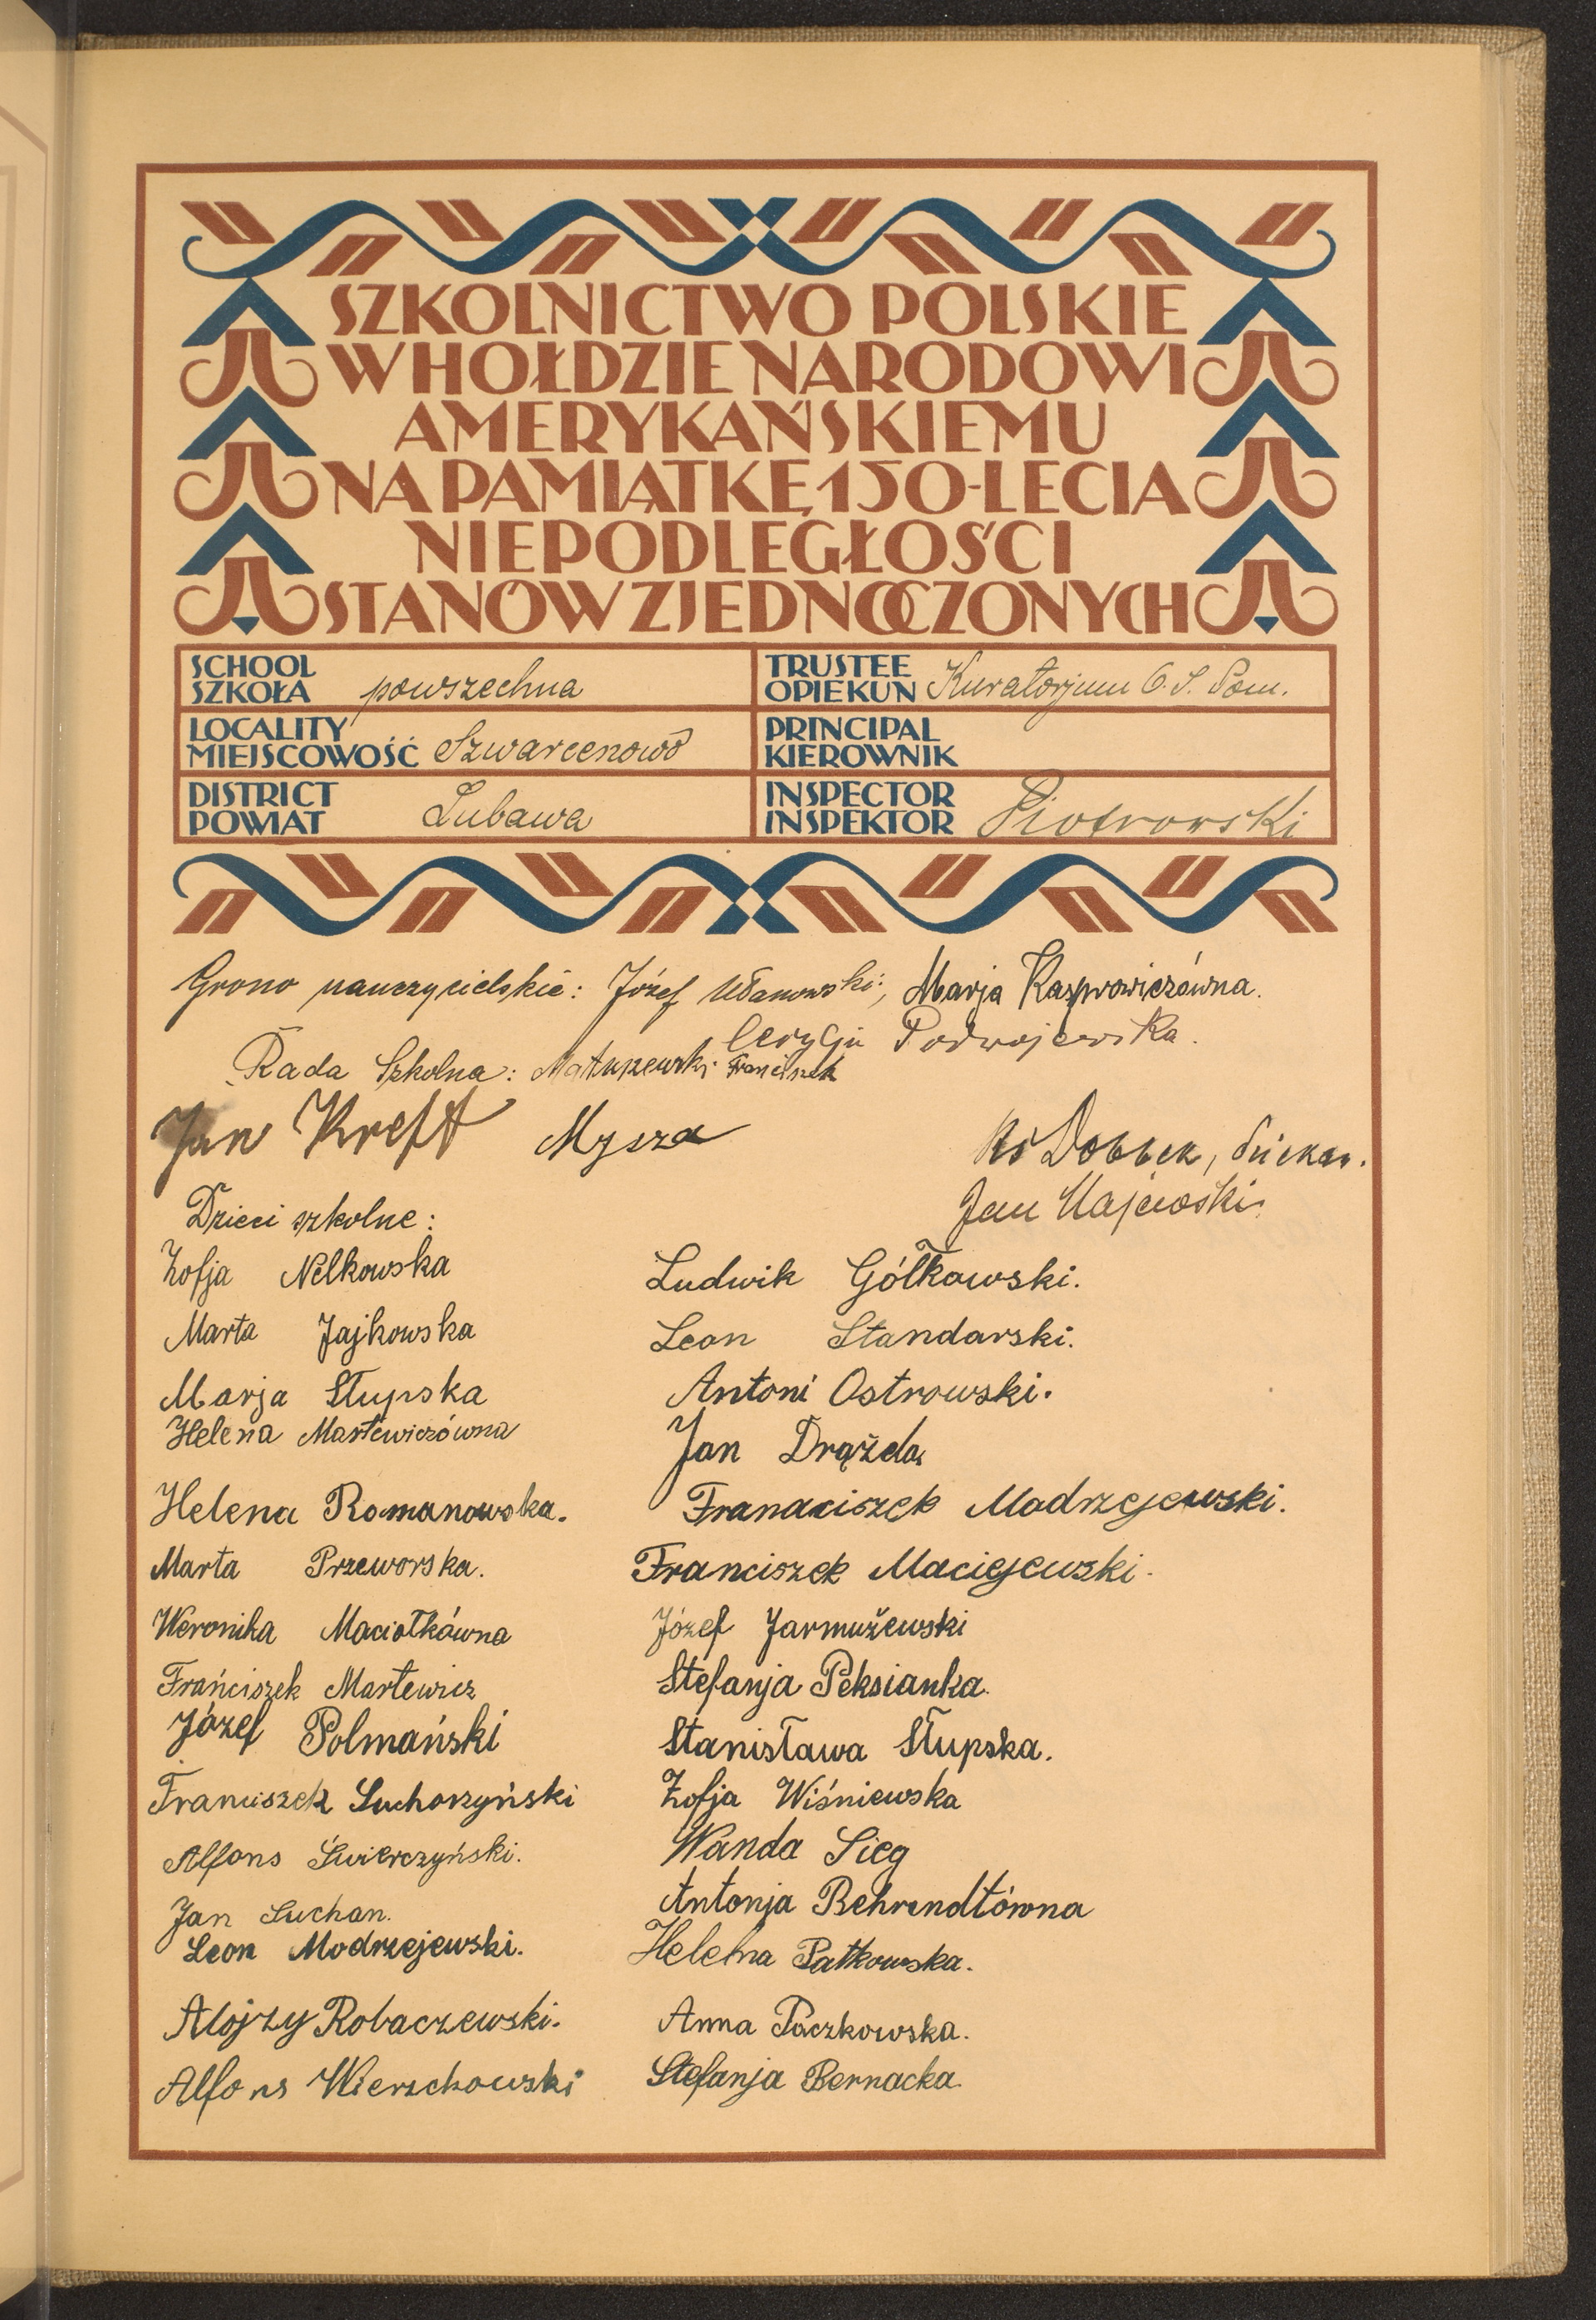 SZKOLNICTWO POLSKIE
W HOŁDZIE NARODOWI
AMERYKAŃSKIEMU
NA PAMIĄTKĘ 150-LECIA
NIEPODLEGŁOŚCI
STANÓW ZJEDNOCZONYCH
SCHOOL
SZKOŁA powszechna
TRUSTEE
OPIEKUN Kuratorjum O. S. Pom.
LOCALITY
MIEJSCOWOŚĆ Szwarcenowo
PRINCIPAL
KIEROWNIK
DISTRICT
POWIAT Lubawa
INSPECTOR
INSPEKTOR Piotrowski
Grono nauczycielskie: Józef Marja Kasprowiczówna.
Podwojewska.
Rada Szkolna: Matuszewski Franciszek
Jan Kreft Mysza
Ks Dobbek, dziekan.
Jan Majewski
Dzieci szkolne:
Zofja Nelkowska
Ludwik Gółkowski.
Marta Jajkowska
Leon Standarski.
Marja Słupska
Antoni Ostrowski.
Helena Martewiczówna
Jan Drążda
Helena Romanowska.
Franaciszek Modrzejewski.
Marta Przeworska.
Franciszek Maciejewski.
Weronika Maciołkówna
Józef Jarmużewski
Frańciszek Martewicz
Stefanja Peksianka.
Józef Polmański
Stanisława Słupska.
Franciszek Suchorzyński
Zofja Wiśniewska
Alfons Świerczyński.
Wanda Sieg
Jan Suchan.
Antonja Behrendtówna
Leon Modrzejewski.
Helena Patkowska.
Alojzy Robaczewski.
Anna Paczkowska.
Alfons Wierzchowski
Stefanja Bernacka.